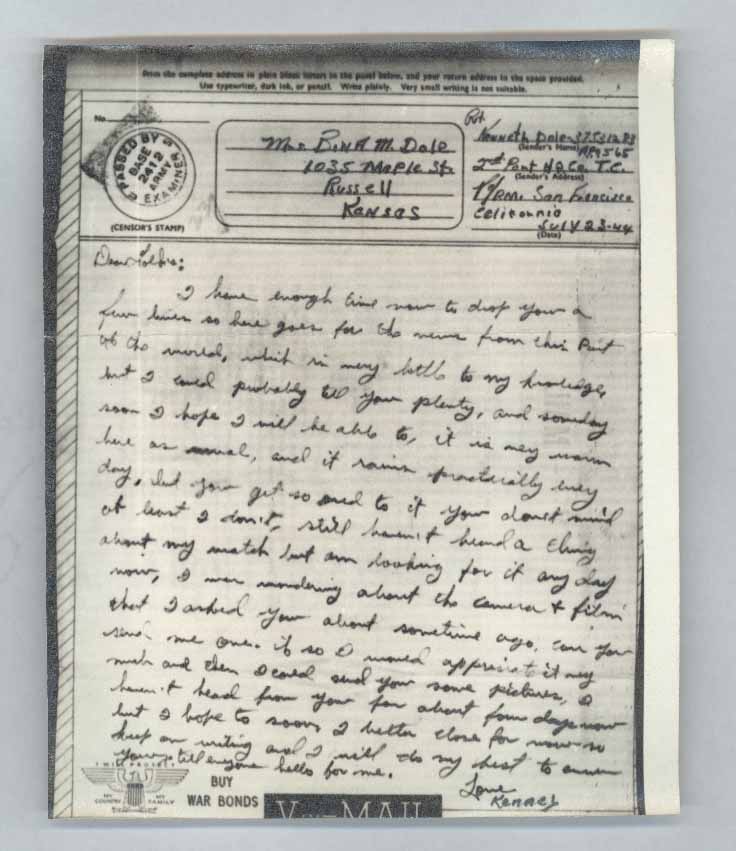 Print the complete address in plain block letters in the panel below, and your return address in the space provided.
Use typewriter, dark ink, or pencil. Write plainly. Very small writing is not suitable.
No.
PASSED BY
BASE
2412
ARMY
EXAMINER
(CENSOR'S STAMP)
Mrs Bina M. Dale
1035 Maple St.
Russell
Kansas
Pvt.
Kenneth Dale
(Sender's Name) APO 565
2nd Port HQ Co. T.C.
(Sender's Address)
P/M. San Francisco
California
July 23-44
(Date)
Dear Folks:
I have enough time now to drop you a
few lines so here goes for the news from this Part
of the world, which is very little to my knowledge,
but I could probably tell you plenty, and someday
soon I hope I will be able to, it is very warm
here as usual, and it rains practically every
day, but you get so used to it you don't mind
at least I don't, still haven't heard a thing
about my watch but am looking for it any day
now, I was wondering about the camera + film
that I asked you about sometime ago, can you
send me one. if so I would appreciate it very
much and then I could send you some pictures, I
haven't head from you for about four days now
but I hope to soon, I better close for now so
keep on writing and I will do my best to answer
yours, tell everyone hello for me.
Love
Kenneth
I WILL PROTECT
MY COUNTRY MY FAMILY
BUY
WAR BONDS
V-MAIL